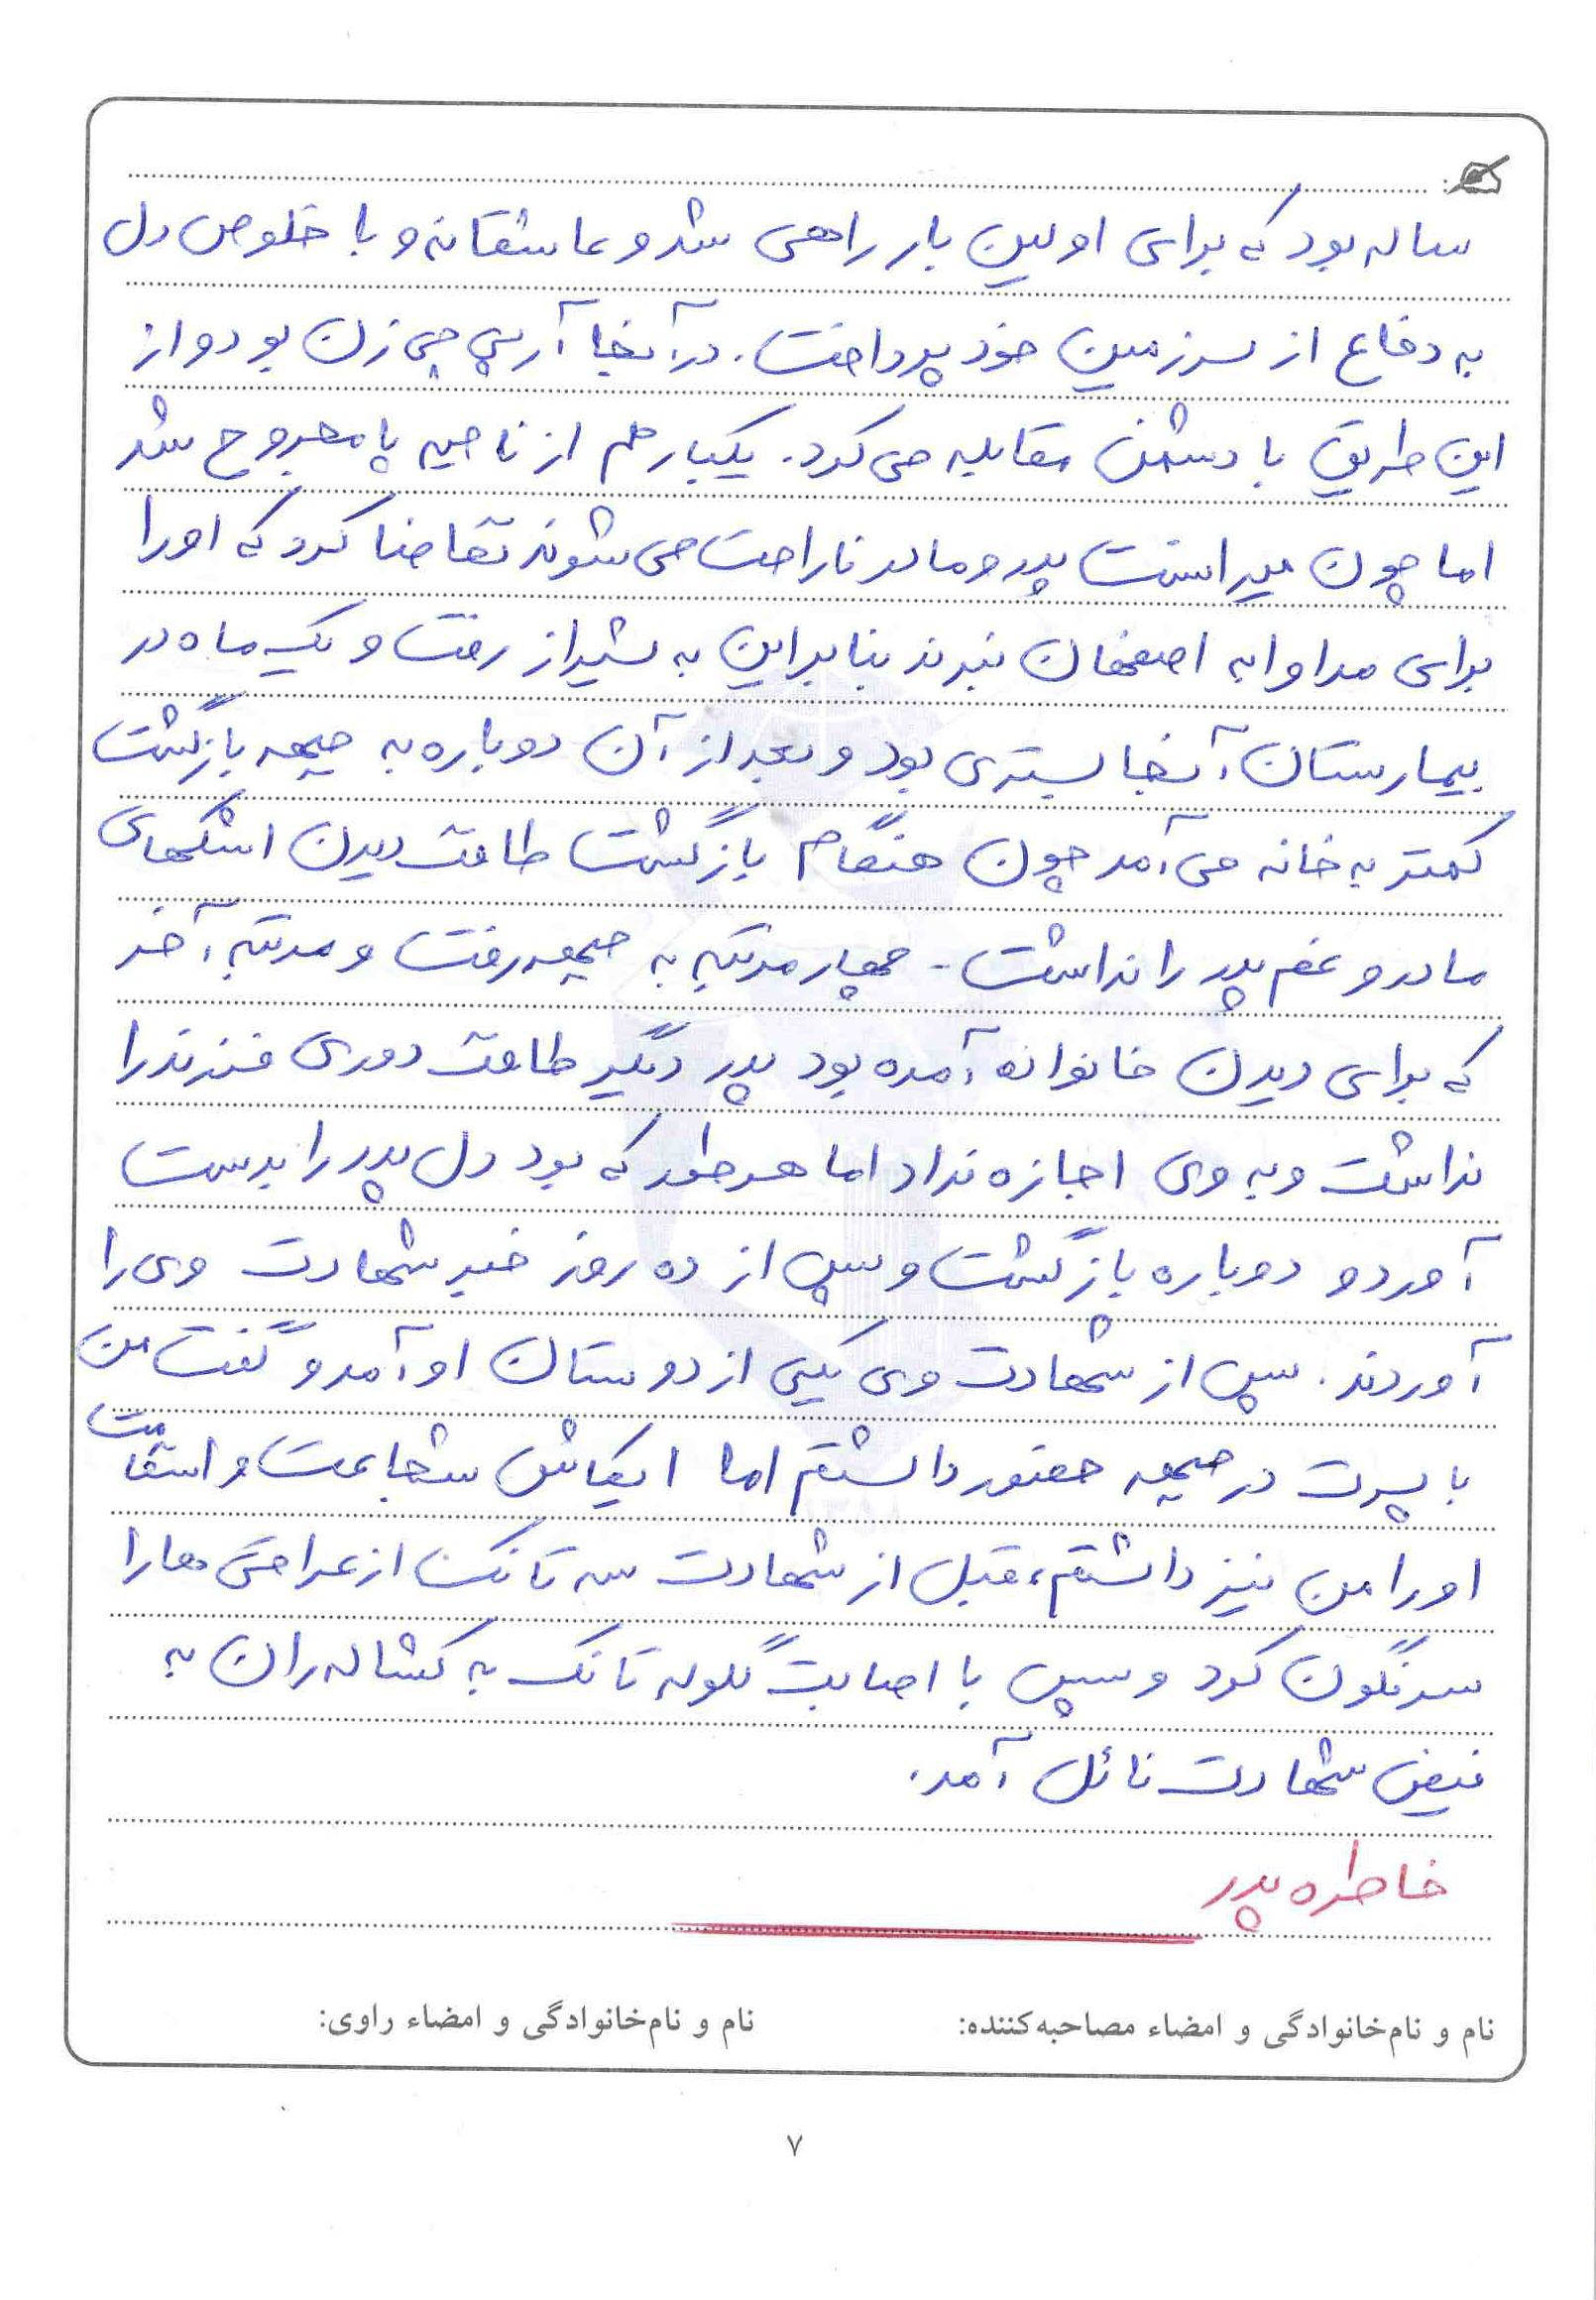 ساله بود که برای اولین بار راهی شد و عاشقانه و با خلوص دل
به دفاع از سرزمین خود پرداخت. در آنجا آر پی جی زن بود و از
این طریق با دشمن مقابله می کرد. یکبار هم از ناحیه پا مجروح شد
اما چون میدانست پدر و مادر ناراحت می شوند تقاضا کرد که او را
برای مداوا به اصفهان نبرند بنابراین به شیراز رفت و یک ماه در
بیمارستان آنجا بستری بود و بعد از آن دوباره به جبهه بازگشت
کمتر به خانه می آمد چون هنگام بازگشت طاقت دیدن اشکهای
مادر و غم پدر را نداشت. چهار مرتبه به جبهه رفت و مرتبه آخر
که برای دیدن خانواده آمده بود پدر دیگر طاقت دوری فرزند را
نداشت و به وی اجازه نداد اما هر طور که بود دل پدر را بدست
آورد و دوباره بازگشت و پس از ده روز خبر شهادت وی را
آوردند. پس از شهادت وی یکی از دوستان او آمد و گفت من
با پسرت در جبهه حضور داشتم اما ایکاش شجاعت و استقامت
او را من نیز داشتم، قبل از شهادت سه تانک از عراقی ها را
سرنگون کرد و سپس با اصابت گلوله تانک به کشاله ران به
فیض شهادت نائل آمد.
خاطره پدر
نام و نام‌خانوادگی و امضاء مصاحبه‌کننده: نام و نام‌خانوادگی و امضاء راوی:
۷